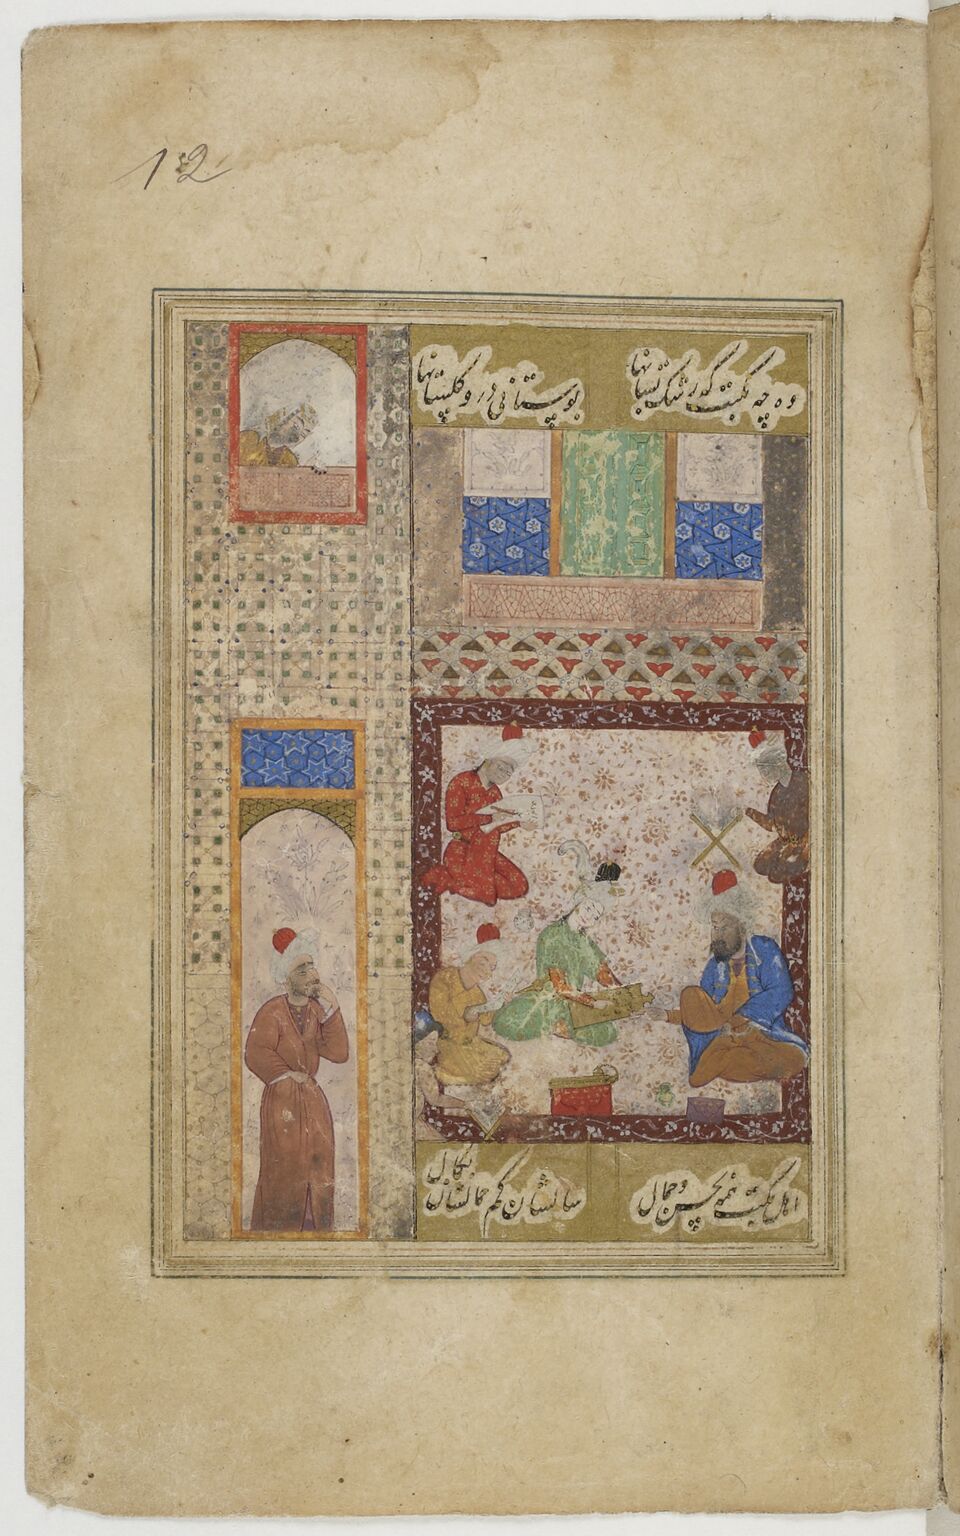 12
وه چه مکتب که رشک بستانها
بوستانی درو گلستانها
اهل مکتب همه بحسن و جمال
سالشان کم جمالشان بکمال